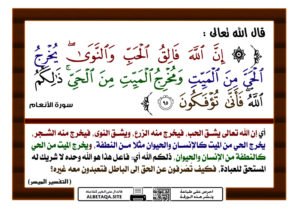 قال الله تعالى :
۞ إِنَّ ٱللَّهَ فَالِقُ ٱلْحَبِّ وَٱلنَّوَىٰ ۖ يُخْرِجُ
ٱلْحَىَّ مِنَ ٱلْمَيِّتِ وَمُخْرِجُ ٱلْمَيِّتِ مِنَ ٱلْحَىِّ ۚ ذَٰلِكُمُ
ٱللَّهُ ۖ فَأَنَّىٰ تُؤْفَكُونَ ٩٥
سورة الأنعام
أي إن الله تعالى يشق الحب، فيخرج منه الزرع، ويشق النوى، فيخرج منه الشجر،
يخرج الحي من الميت كالإنسان والحيوان مثلا من النطفة، ويخرج الميت من الحي
كالنطفة من الإنسان والحيوان، ذلكم الله أي: فاعل هذا هو الله وحده لا شريك له
المستحق للعبادة، فكيف تصرفون عن الحق إلى الباطل فتعبدون معه غيره؟
(التفسير الميسر)
ALBETAQA.SITE
احرص على طباعة
ونشر هذه الورقة